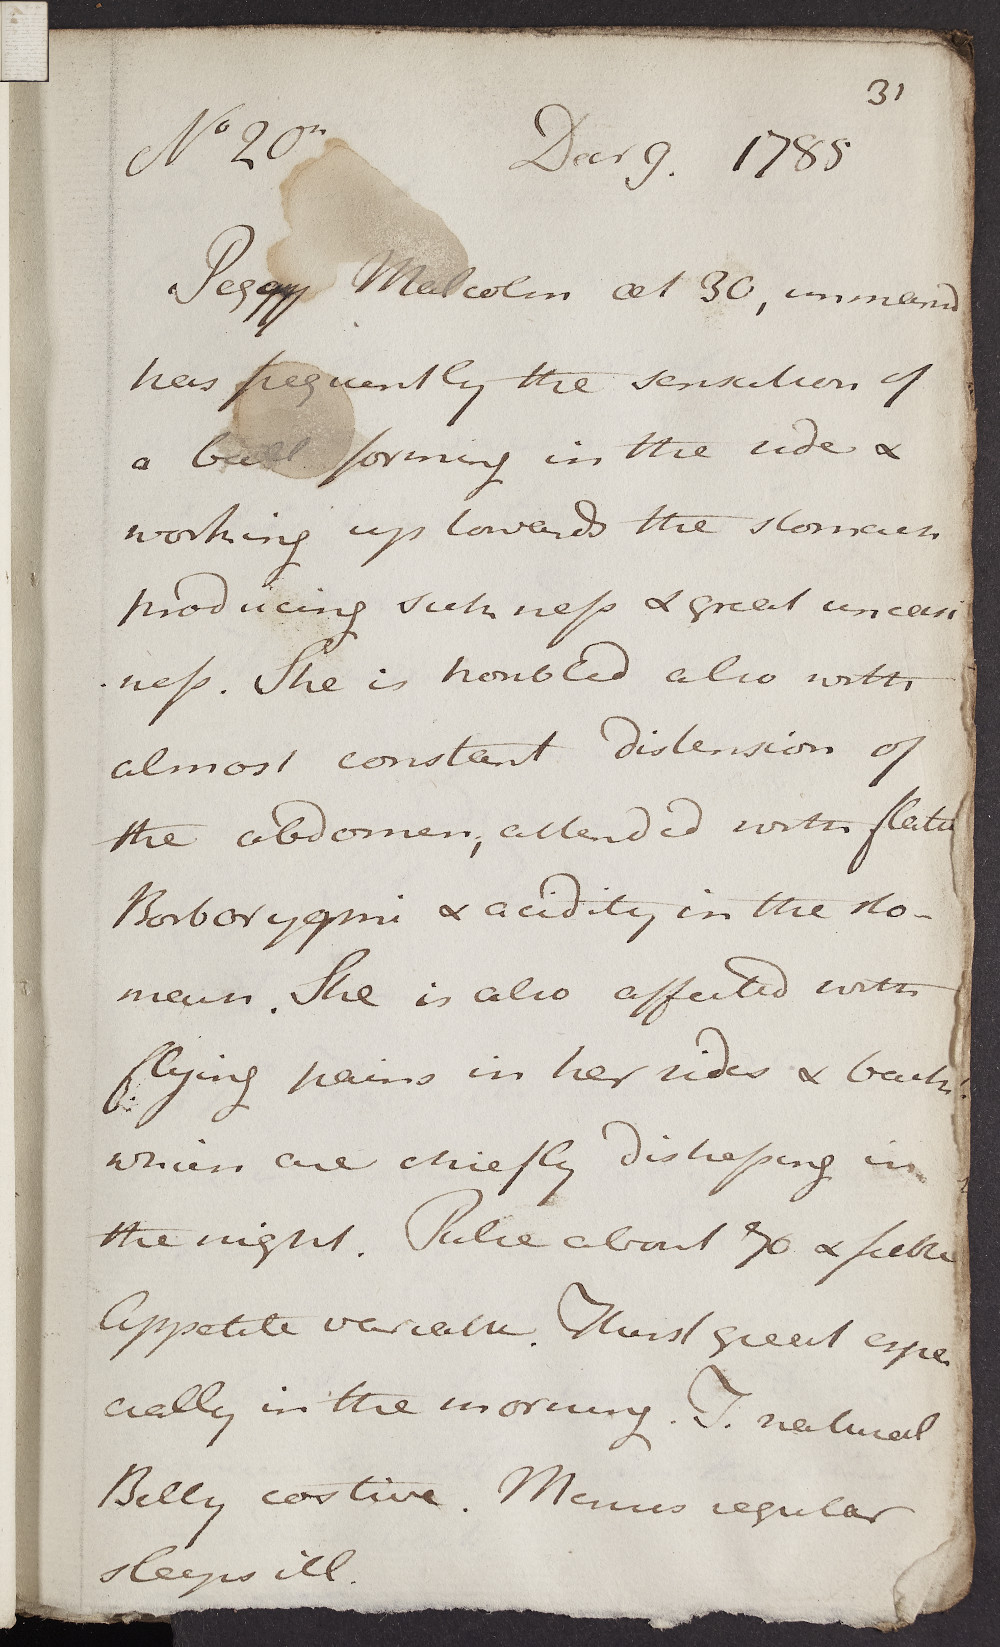 31
No 20n Decr 9. 1785
Peggy Malcolm æt 30, unmarrd
has frequently the sensation of
a ball forming in the side &
working up towards the stomach
producing sickness & great uneasi
ness. She is troubled also with
almost constant distension of
the abdomen, attended with flatu
Borborygmi & acidity in the sto-
mach. She is also affected with
flying pains in her sides & back
which are chiefly distressing in
the night. Pulse about 70 & feeble
Appetite variable. Thirst great espe
cially in the morning. T. natural
Belly costive. Menses regular
sleeps ill.